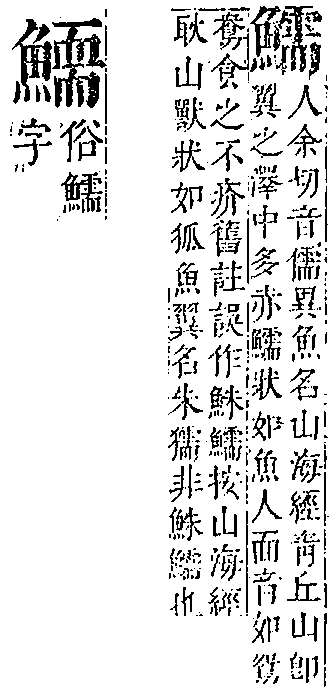 鱬
人余切音儒異魚名山海經青丘山即
翼之澤中多赤鱬狀如魚人面音如鴛
鴦食之不疥舊註誤作鮢鱬按山海經
耿山獸狀如狐魚翼名朱獳非鮢鱬也
俗鱬
字